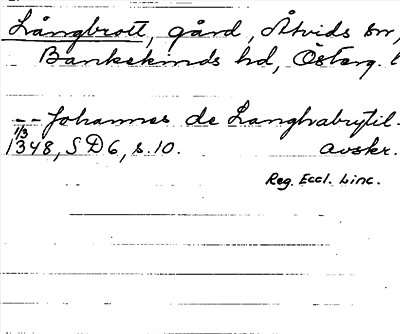 Långbrott, gård, Åtvids sn,
Bankekinds hd, Österg. l
-- Johannes de Langhabrytil-
1/3
1348, SD6, s.10. avskr.
Reg. Eccl. Linc.